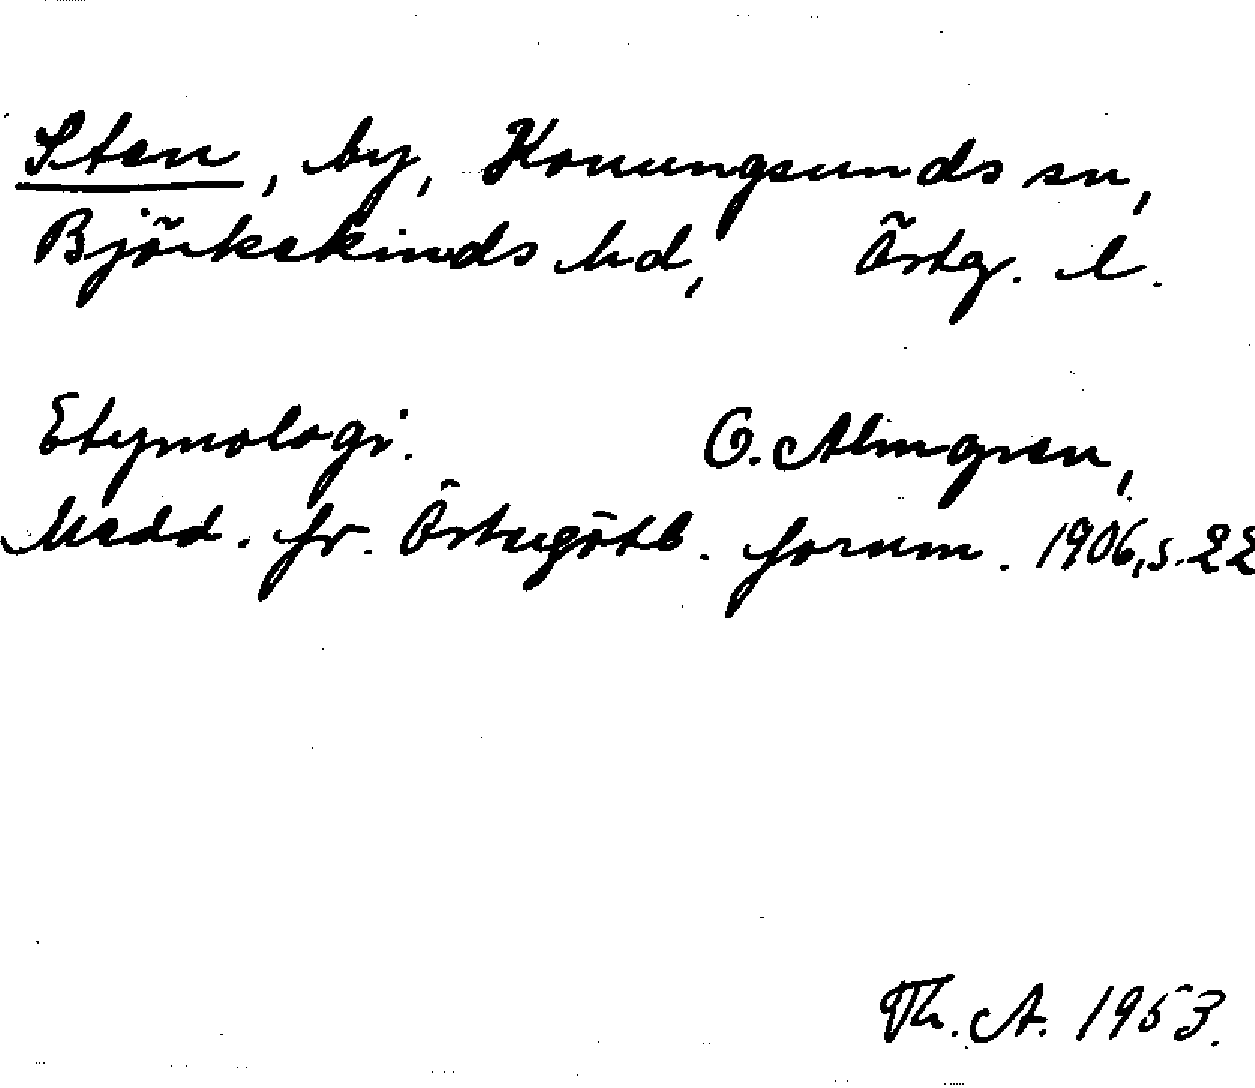 Sten, by, Konungsunds sn,
Björkekinds hd, Östg. l.
Etymologi. O. Almgren,
Medd. fr. Östergötl. fornm. 1906, s. 22
Th. A. 1953.